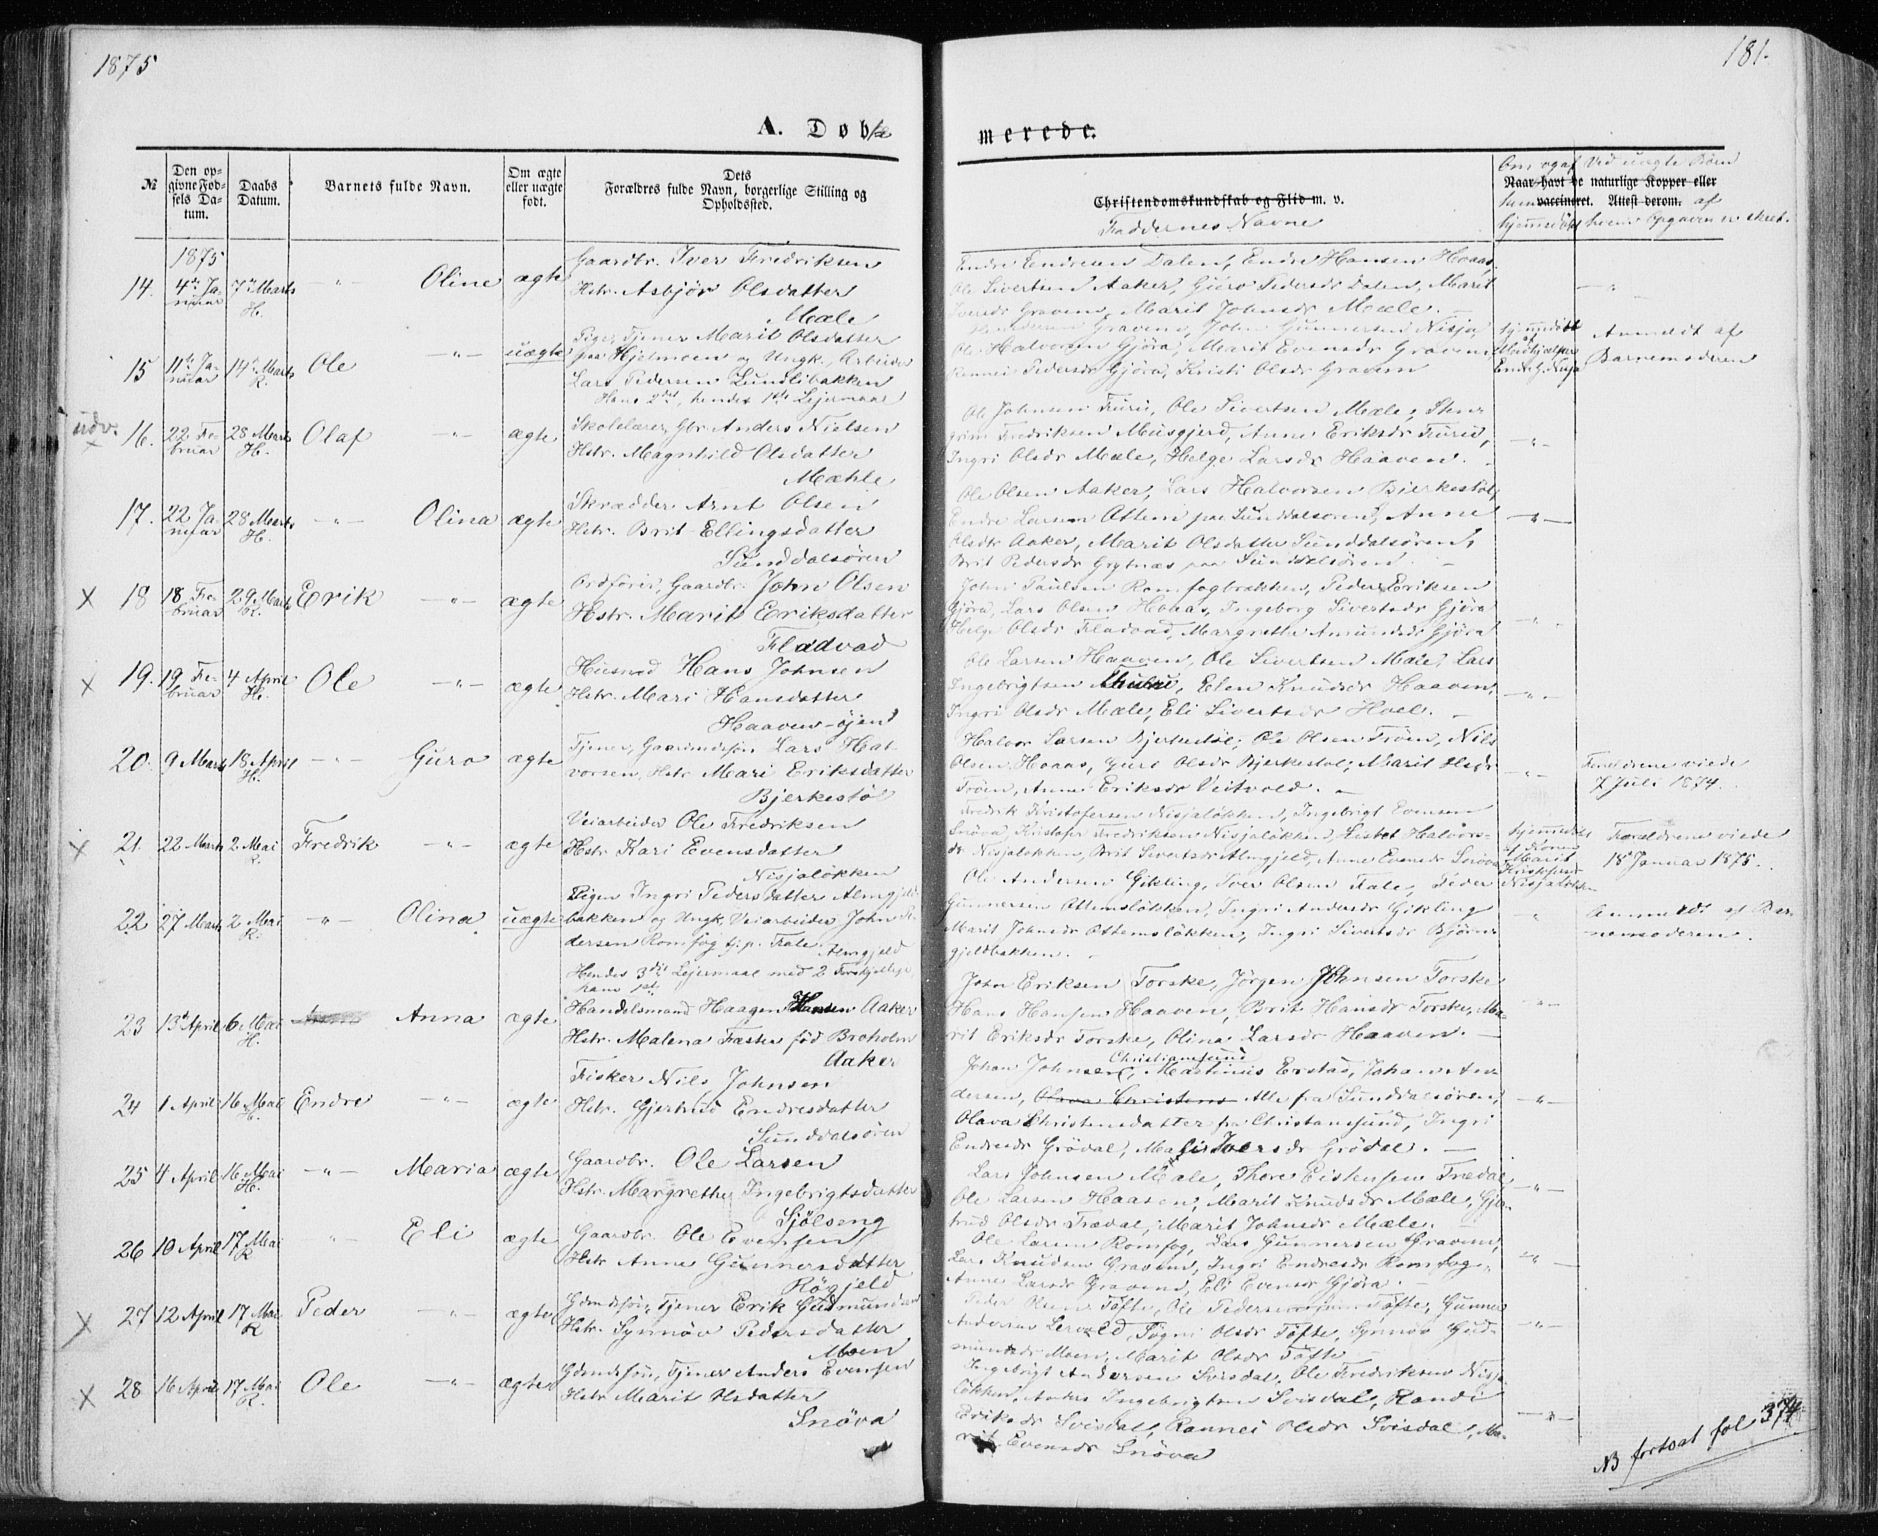 1875
181.
A. Døbte
merede.
№
Den opgivne Fødsels Datum.
Daabs Datum.
Barnets fulde Navn.
Om ægte eller uægte født.
Dets Forældres fulde Navn, borgerlige Stilling og Opholdssted.
Christendomskundskab og Flid m. v.
Faddernes Navne
Naar havt de naturlige Kopper eller vaccineret. Attest derom.
Om og af hvem hjemmedøbt
Ved uægte Børn af hvem Opgaven er skeet.
1875
14. 4de Januar 7de Marts H. -"- Oline ægte
Gaardbr. Iver Fredriksen
Hstr. Asbjør Olsdatter
Mæle
Endre Endresen Dalen, Endre Hansen Hoaas,
Ole Sivertsen Aaker, Guro Pedersdr Dalen, Marit
Iversdr Gravem, Marit Johnsdr Mæle. -
15 11te Januar 14de Marts K. Ole -"- uægte
Pige, Tjener Marit Olsdatter
paa Hjelmoen og Ungk., Arbeider
Lars Pedersen Lundlibakken
Hans 2det, hendes 1ste Lejermaal
Gravem, John Gunnersen Nisja,
Ole Halvorsen Gjöra, Marit Evensdr Gravem
Rannei Pedersdr Gjöra, Kristi Olsdr Gravem
hjemmedöbt af Medhjælper Endr. G. Nisja
Anmeldt af
Barnemoderen
udv.
16. 22 Februar 28 Marts H. Olaf -"- ægte
Skolelærer, Gbr. Anders Nielsen
Hstr. Magnhild Olsdatter
Mæhle
Ole Johnsen Furu, Ole Sivertsen Mæle, Sten-
grim Fredriksen Musgjerd, Anne Eriksdr Furu,
Ingri Olsdr Mæle, Helge Larsdr Haaven. -
17. 22 Januar 28 Marts H. -"- Olina ægte
Skrædder Arnt Olsen
Hstr. Brit Ellingsdatter
Sunddalsören
Ole Olsen Aaker, Lars Halvorsen Bjerkestöl,
Endre Larsen Ottem paa Sunddalsören, Anne
Olsdtr Aaker, Marit Olsdatter Sunddalsören,
Brit Pedersdr Grytnæs paa Sunddalsören. -
x 18 18 Februar 29 Marts K. Erik -"- ægte
Ordförer, Gaardbr. John Olsen
Hstr. Marit Eriksdatter
Fladvad
John Paulsen Romfogbakken, Peder Eriksen
Gjöra, Lars Olsen Hoaas, Ingeborg Sivertsdr Gjöra
Helge Olsdr Fladvad, Margrethe Amundsdr Gjöra
x 19. 19 Februar 4 April H. Ole -"- ægte
Husmd Hans Johnsen
Hstr. Mari Hansdatter
Haaven-öjen
Ole Larsen Haaven, Ole Sivertsen Mæle, Lars
Ingebrigtsen, Elen Knudsdr Haaven,
Ingri Olsdr Mæle, Eli Sivertsdr Hoel. -
20. 9 Marts 18 April H. -"- Guro ægte
Tjener, Gaardmdssön Lars Hal-
vorsen, Hstr Mari Eriksdatter
Bjerkestöl
Halvor Larsen Bjerkestöl, Ole Olsen Tröen, Nils
Olsen Hoaas, Guro Olsdr Bjerkestöl, Marit Olsdr
Tröen, Anne Eriksdr Veitvold. -
Forældrene viede
7 Juli 1874.
x 21. 22 Marts 2 Mai K. Fredrik -"- ægte
Veiarbeider Ole Fredriksen
Hstr Kari Evensdatter
Nisjalökken
Fredrik Kristofersen Nisjalökken, Ingebrigt Evensen
Snöva, Kristofer Fredriksen Nisjalökken, Halvors-
dr Nisjalökken, Brit Sivertsdr Almgjeld, Anne Evensdr Snöva
hjemmedöbt af Konen Marit Nisjalökken
Forældrene viede
18 Januar 1875.
22 27 Marts 2 Mai K. -"- Olina uægte
Pigen Ingri Pedersdatter Almgjeld-
bakken og Ungk. Veiarbeider John Pe-
dersen Romfog tj. p. Fale
Almgjeld
Hendes 3die Lejermaal med 2 Forskjellige,
hans 1ste
Ole Andersen Gikling, Iver Olsen Fale, Peder
Gunnersen Ottemslökken, Ingri Andersdr Gikling
Marit Johnsdr Ottemslökken, Ingri Sivertsdr Björns-
gjeldbakken. -
Anmeldt af Bar-
nemoderen.
23 13de April 6 Mai H. Anna ægte
Handelsmand Haagen Hansen Aaker
Hstr. Malena Fæster föd Broholm
Aaker
John Eriksen Torske, Jörgen Johnsen Torske
Hans Hansen Haaven, Brit Hansdr Torske, Ma-
rit Eriksdr Torske, Olina Larsdr Haaven. -
24 1 April 16 Mai H. Endre -"- ægte
Fisker Nils Johnsen
Hstr. Gjertrud Endresdatter
Sunddalsören
Christiansund
Johan Johnsen, Martinus Erstad, Johan An-
dersen, Olava Christens Alle fra Sunddalsören,
Olava Christensdatter fra Christiansund, Ingri
Endresdr Grödal, Mali Iversdr Grödal. -
25 4 April 16 Mai H. -"- Maria ægte
Gaardbr. Ole Larsen
Hstr. Margrethe Ingebrigtsdatter
Sjölseng
Lars Johnsen Mæle, Thore Eistensen Trædal,
Ole Larsen Haasen, Marit Knudsdr Mæle, Gjer-
trud Olsdr Trædal, Marit Johnsdr Mæle. -
26 10 April 17 Mai K. -"- Eli ægte
Gaardbr. Ole Evensen
Hstr. Anne Gunnersdatter
Rögjeld
Ole Larsen Romfog, Lars Gunnersen Gravem,
Lars Knudsen Gravem, Ingri Endresdr Romfog,
Anne Larsdr Gravem, Eli Evensdr Gjöra. -
x 27 12 April 17 Mai K. Peder -"- ægte
Gdmdssön, Tjener Erik Gudmundsen
Hstr. Synnöv Pedersdatter
Moen
Peder Olsen Töfte, Ole Pedersen Töfte, Gunner
Andersen Lervold, Sögni Olsdr Töfte, Synnöv Gud-
mundsdr Moen, Marit Olsdr Töfte
x 28 16 April 17 Mai K. Ole -"- ægte
Gdmdssön, Tjener Anders Evensen
Hstr Marit Olsdatter
Snöva
Ingebrigt Andersen Svisdal, Ole Fredriksen Nisja-
lökken, Anders Ingebrigtsen Svisdal, Randi
Eriksdr Svisdal, Rannei Olsdr Svisdal, Ma-
rit Evensdr Snöva
NB fortsat fol 374